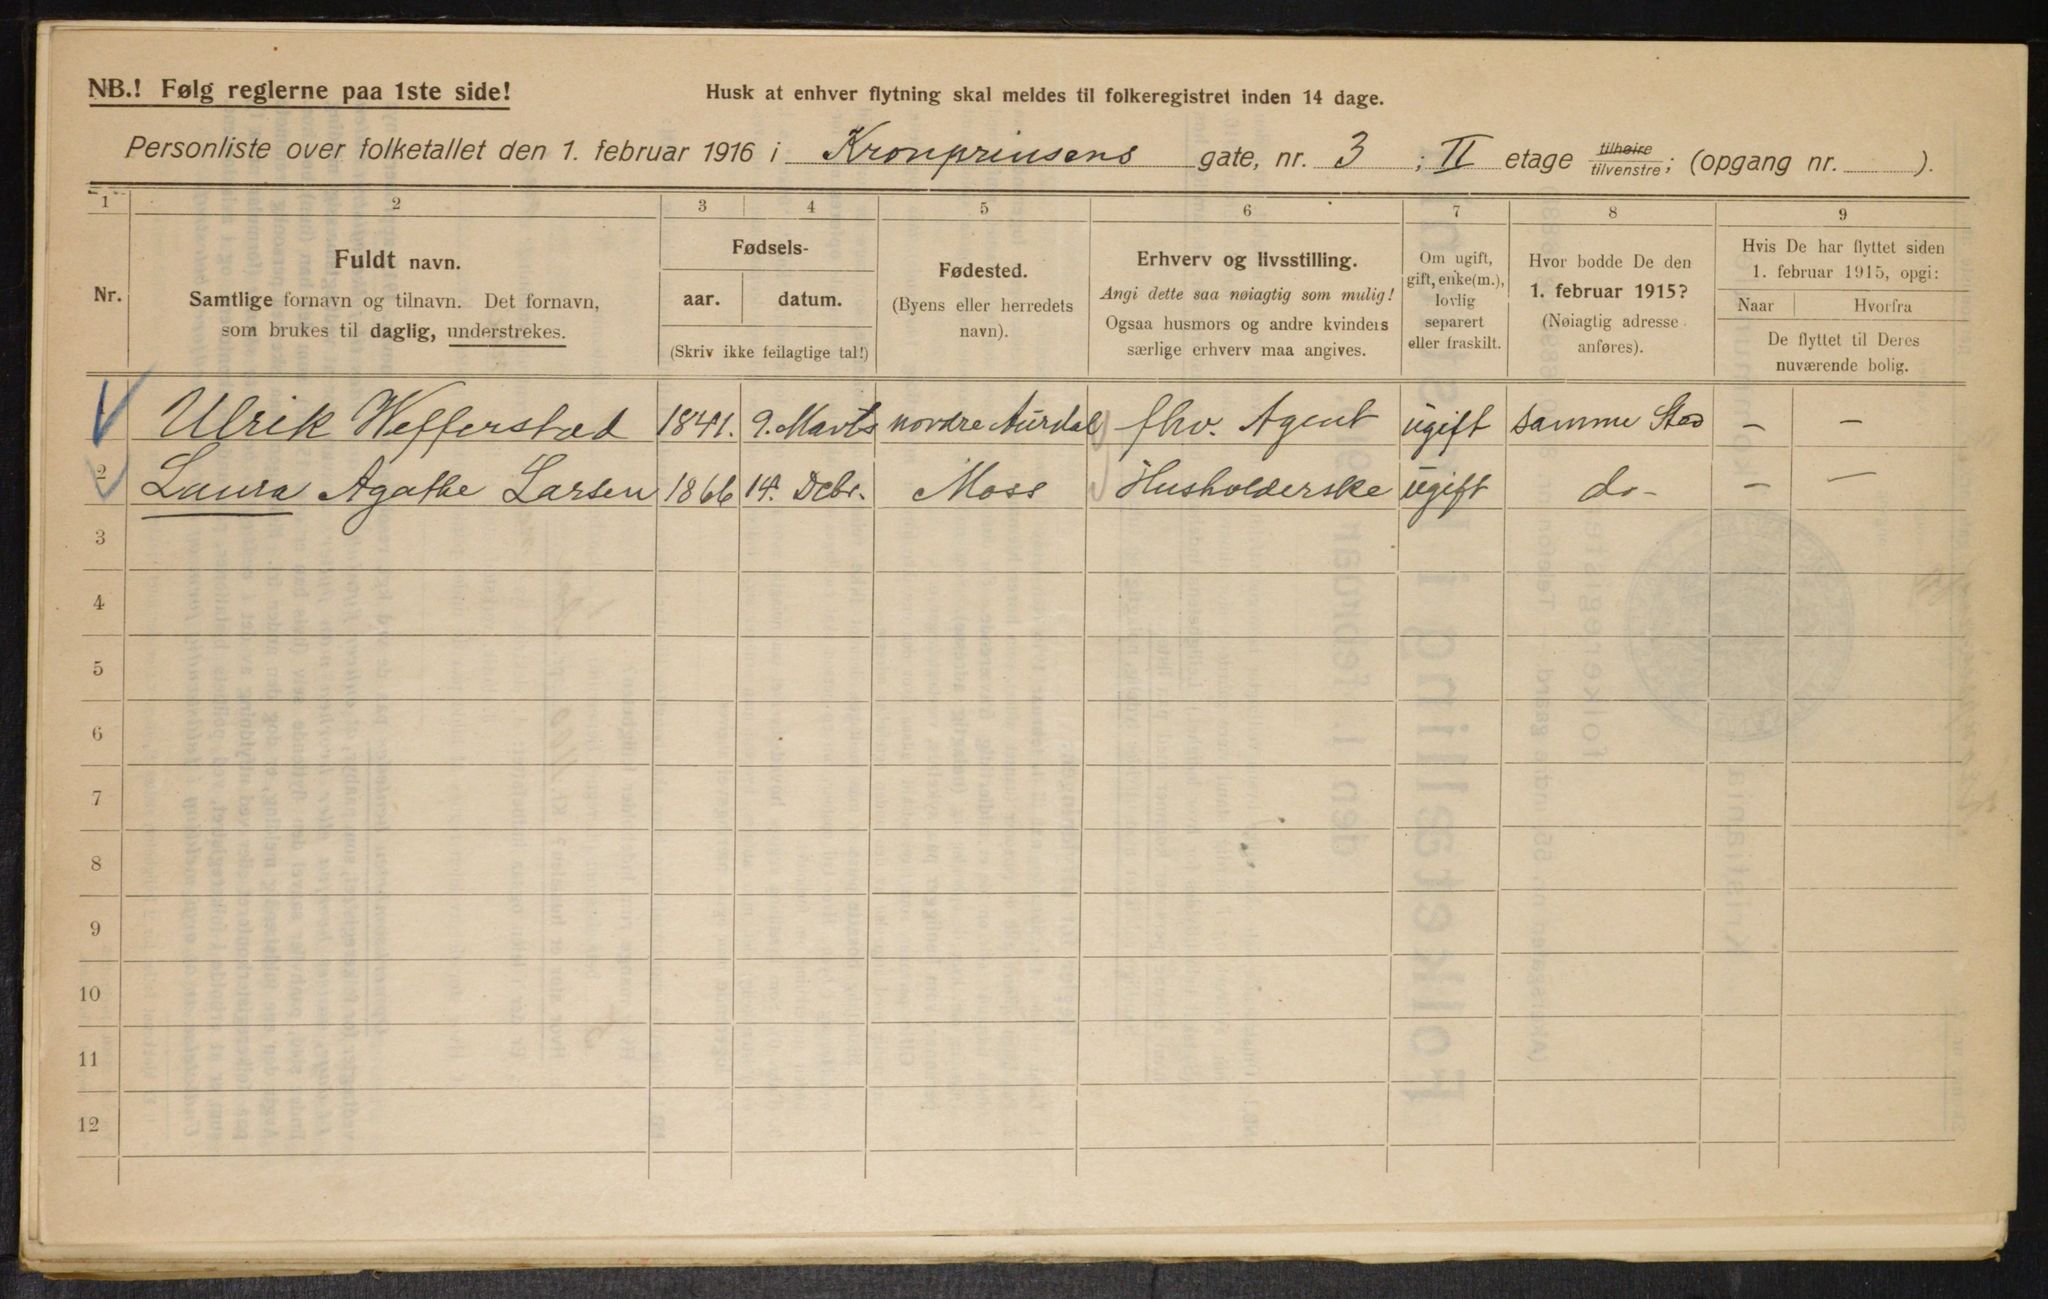 NB.! Følg reglerne paa 1ste side!
Husk at enhver flytning skal meldes til folkeregistret inden 14 dage.
Personliste over folketallet den 1. februar 1916 i Kronprinsens gate, nr. 3 ; II etage tilhøire tilvenstre; (opgang nr. ).
1 2 3 4 5 6 7 8 9
Nr.
Fuldt navn.
Samtlige fornavn og tilnavn. Det fornavn,
som brukes til daglig, understrekes.
Fødsels-
aar. datum.
(Skriv ikke feilagtige tal!)
Fødested.
(Byens eller herredets
navn).
Erhverv og livsstilling.
Angi dette saa nøiagtig som mulig!
Ogsaa husmors og andre kvinders
særlige erhverv maa angives.
Om ugift,
gift, enke(m.),
lovlig
separert
eller fraskilt.
Hvor bodde De den
1. februar 1915?
(Nøiagtig adresse
anføres).
Hvis De har flyttet siden
1. februar 1915, opgi:
Naar Hvorfra
De flyttet til Deres
nuværende bolig.
Ulrik Wefferstad 1841. 9. Marts nordre Aurdal fhv. Agent ugift samme Sted - -
2 Laura Agathe Larsen 1866 14. Debr. Moss Husholderske ugift do- - -
3
4
5
6
7
8
9
10
11
12